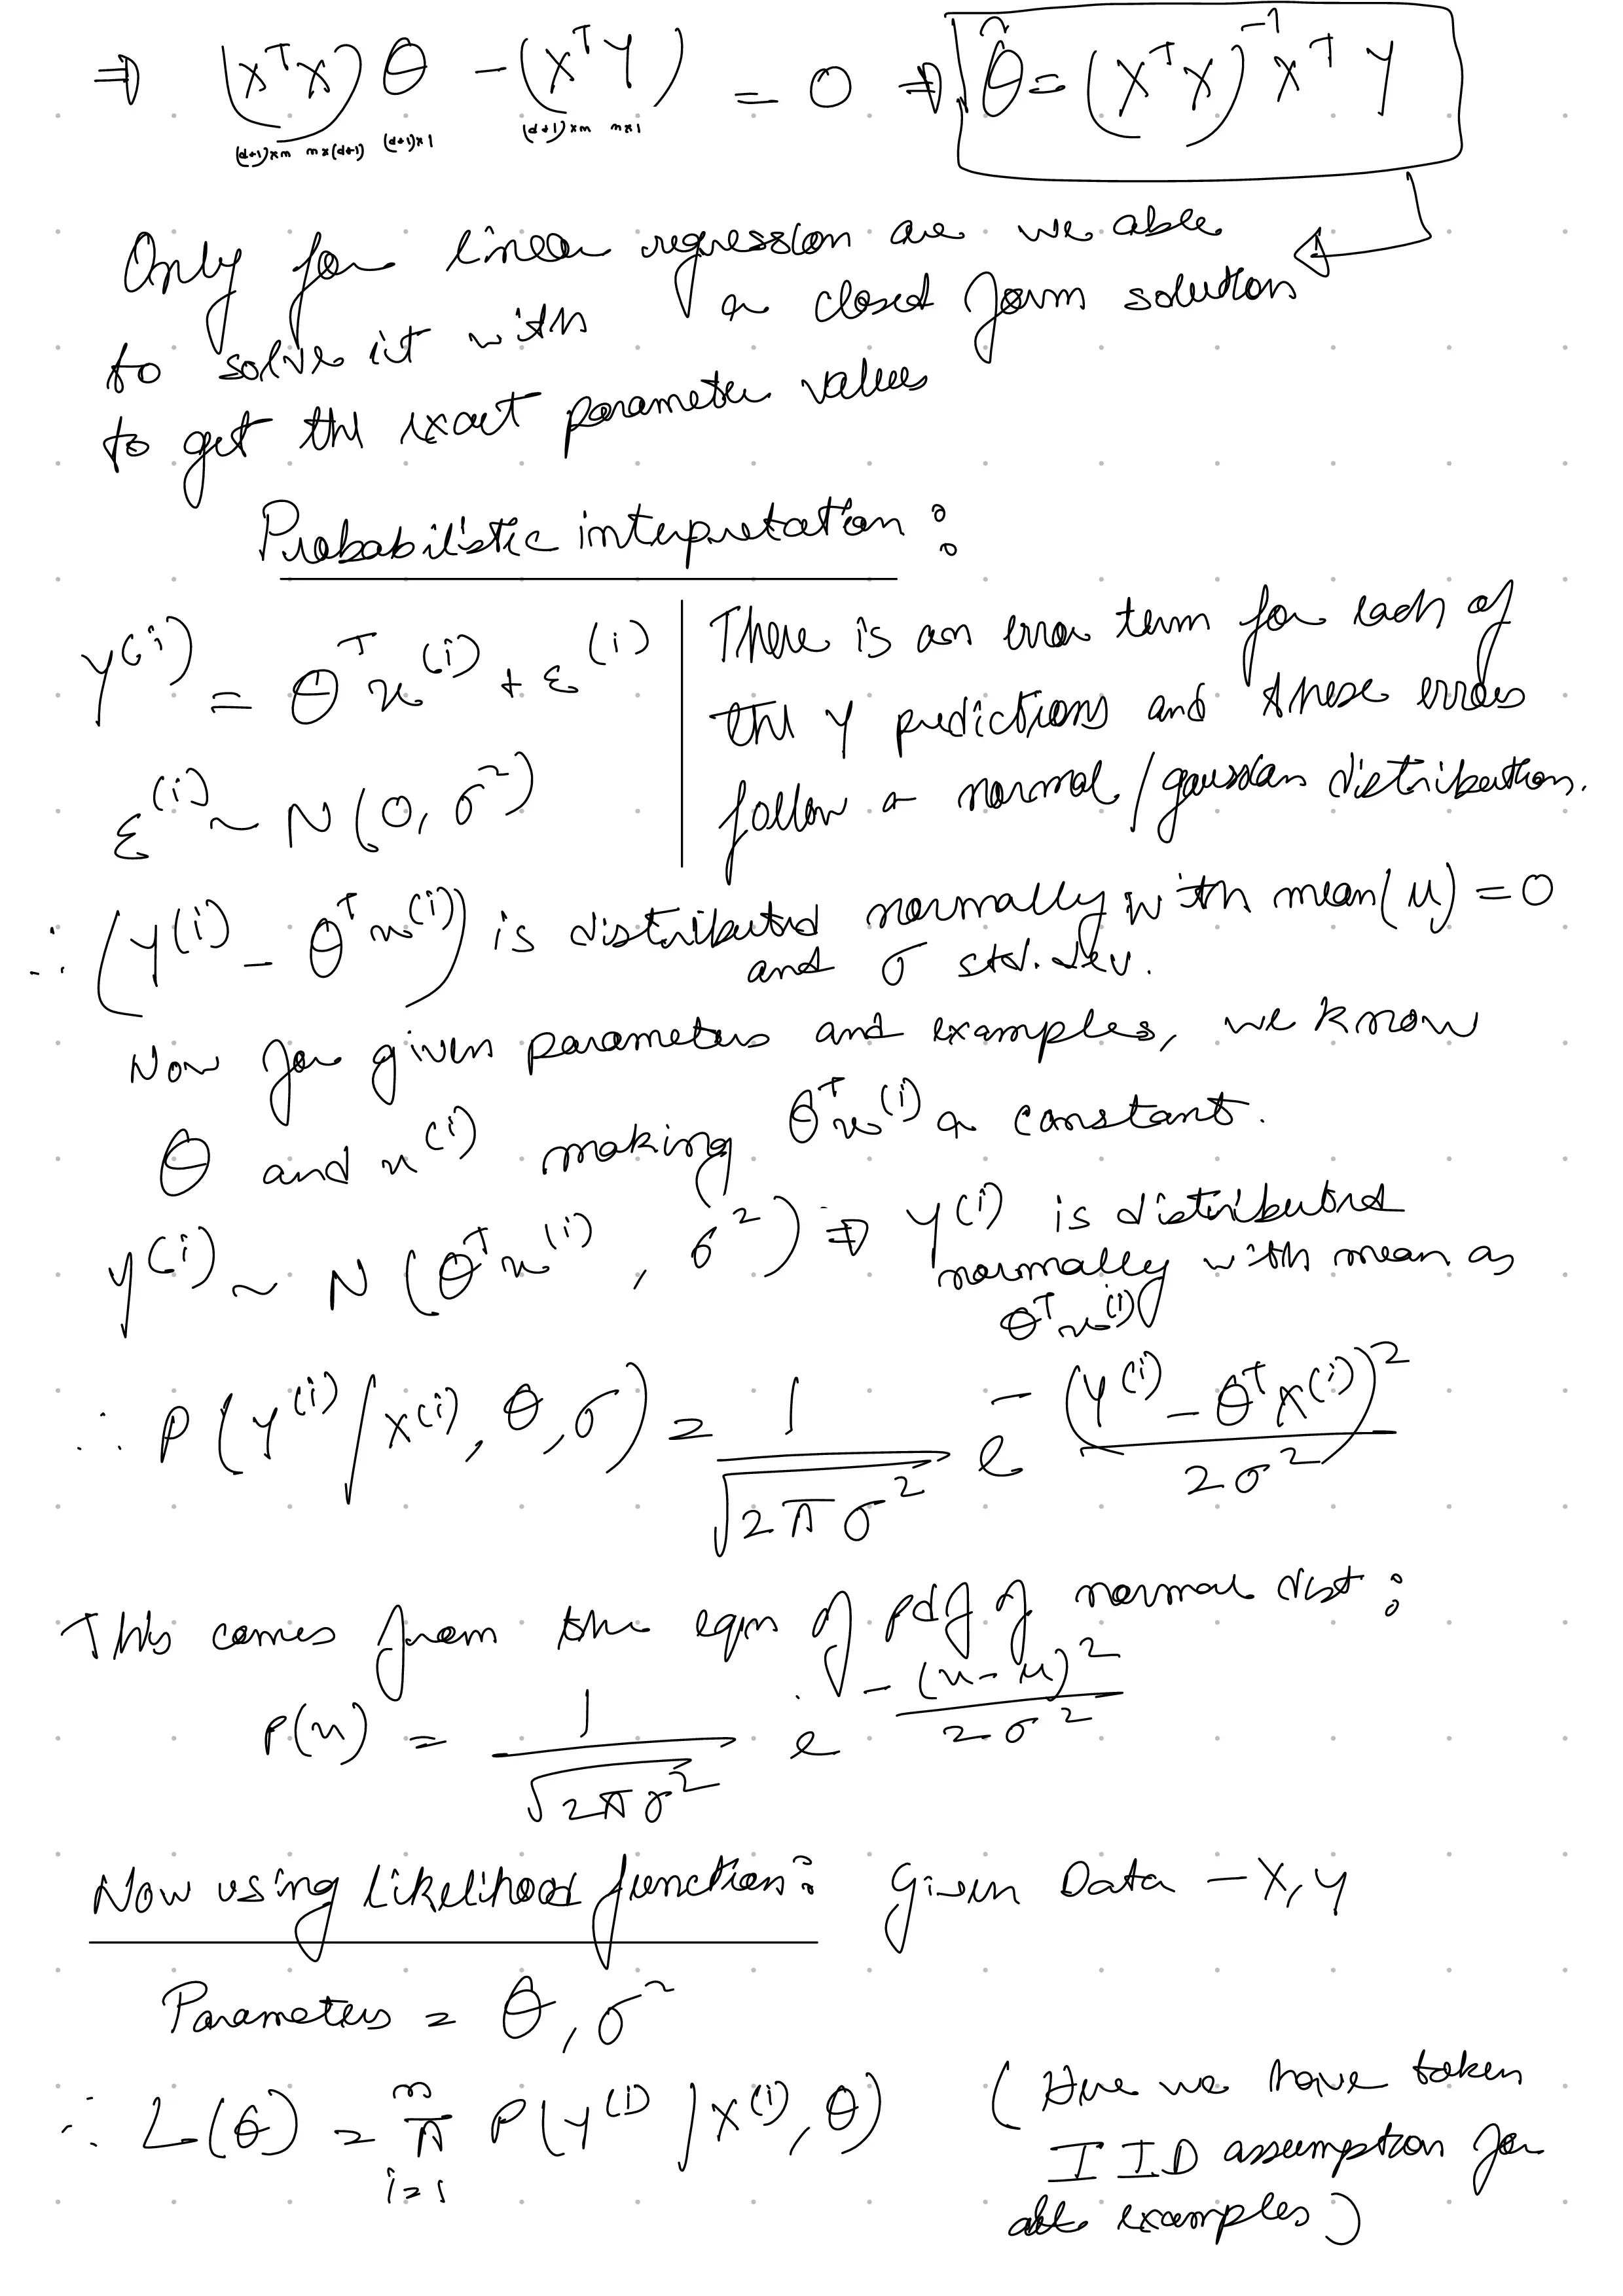 ⇒ (XᵀX) θ − (XᵀY) = 0 ⇒ θ̂ = (XᵀX)⁻¹ Xᵀ Y
(d+1)×m m×(d+1) (d+1)×1 (d+1)×m m×1
Only for linear regression are we able
to solve it with a closed form solution
to get the exact parameter values
Probabilistic interpretation:
y⁽ⁱ⁾ = θᵀx⁽ⁱ⁾ + ε⁽ⁱ⁾
ε⁽ⁱ⁾ ~ N(0, σ²)
There is an error term for each of
the y predictions and these errors
follow a normal/gaussian distribution.
∴ (y⁽ⁱ⁾ − θᵀx⁽ⁱ⁾) is distributed normally with mean(μ) = 0
and σ std. dev.
Now for given parameters and examples, we know
θ and x⁽ⁱ⁾ making θᵀx⁽ⁱ⁾ a constant.
y⁽ⁱ⁾ ~ N(θᵀx⁽ⁱ⁾, σ²) ⇒ y⁽ⁱ⁾ is distributed
normally with mean as
θᵀx⁽ⁱ⁾
∴ P(y⁽ⁱ⁾/x⁽ⁱ⁾, θ, σ) = 1/√(2πσ²) e^(−(y⁽ⁱ⁾ − θᵀx⁽ⁱ⁾)²/2σ²)
This comes from the eqn of pdf of normal dist:
P(x) = 1/√(2πσ²) e^(−(x−μ)²/2σ²)
Now using Likelihood function: Given Data − X, Y
Parameters = θ, σ²
∴ L(θ) = π_{i=1}^{m} P(y⁽ⁱ⁾/x⁽ⁱ⁾, θ)
(Here we have taken
IID assumption for
all examples)